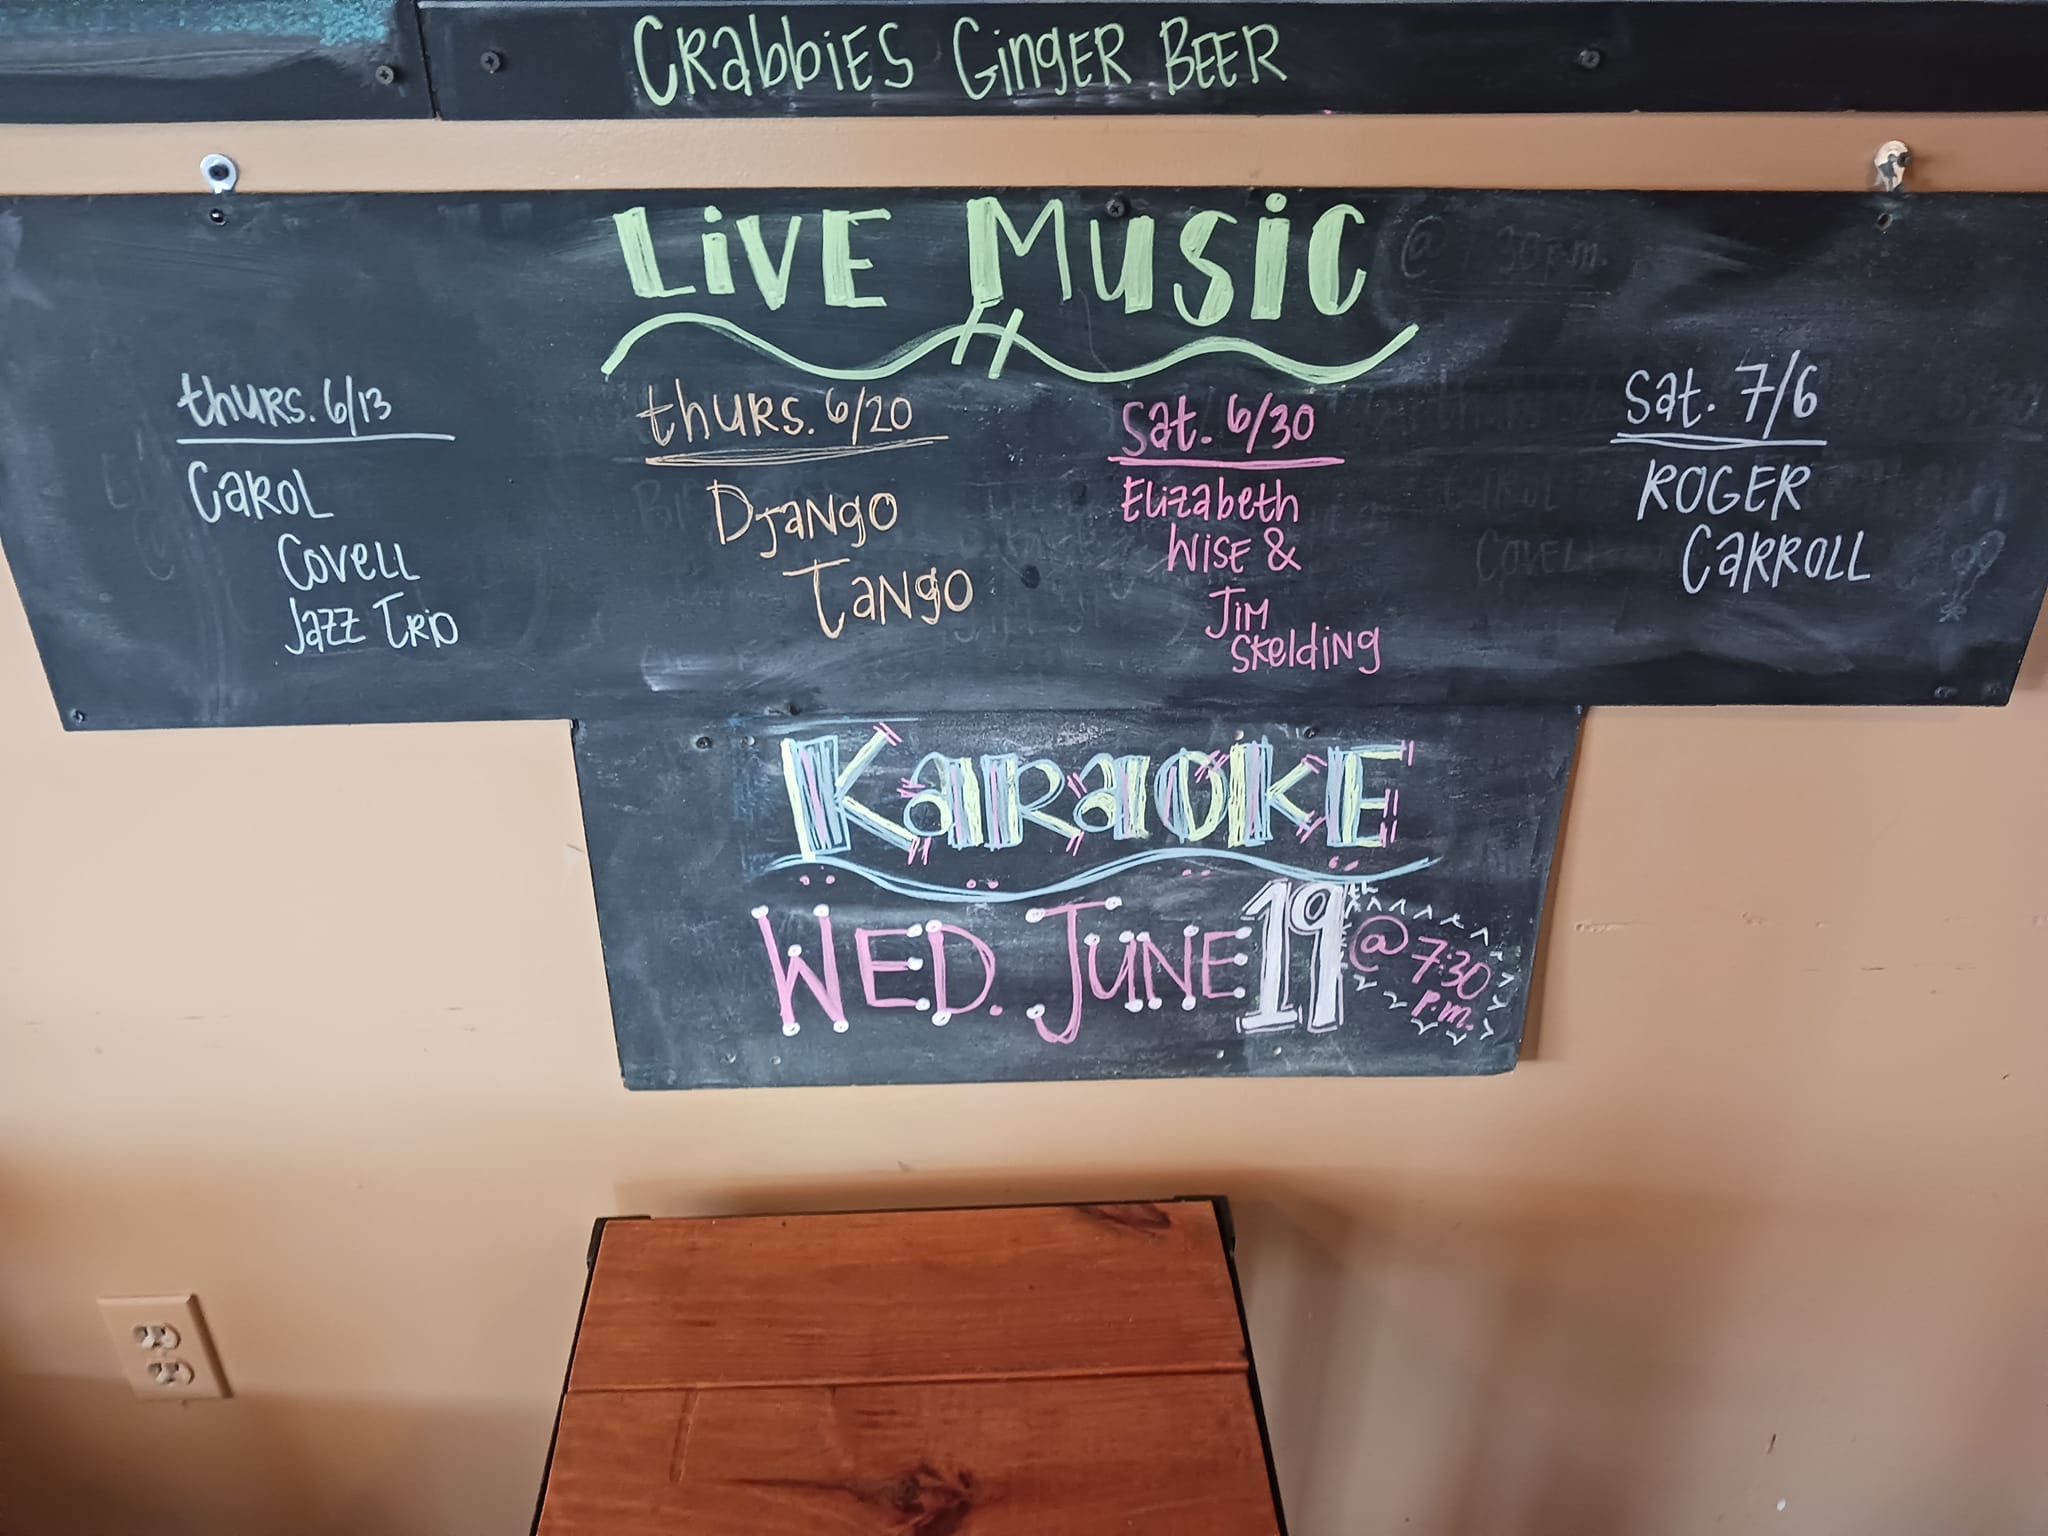 Crabbies Ginger Beer
Live Music
thurs. 6/13
Carol
Covell
Jazz Trio
thurs. 6/20
Django
Tango
Sat. 6/30
Elizabeth
Wise &
Jim
Skelding
Sat. 7/6
Roger
Carroll
Karaoke
Wed. June 19th @ 7:30
p.m.